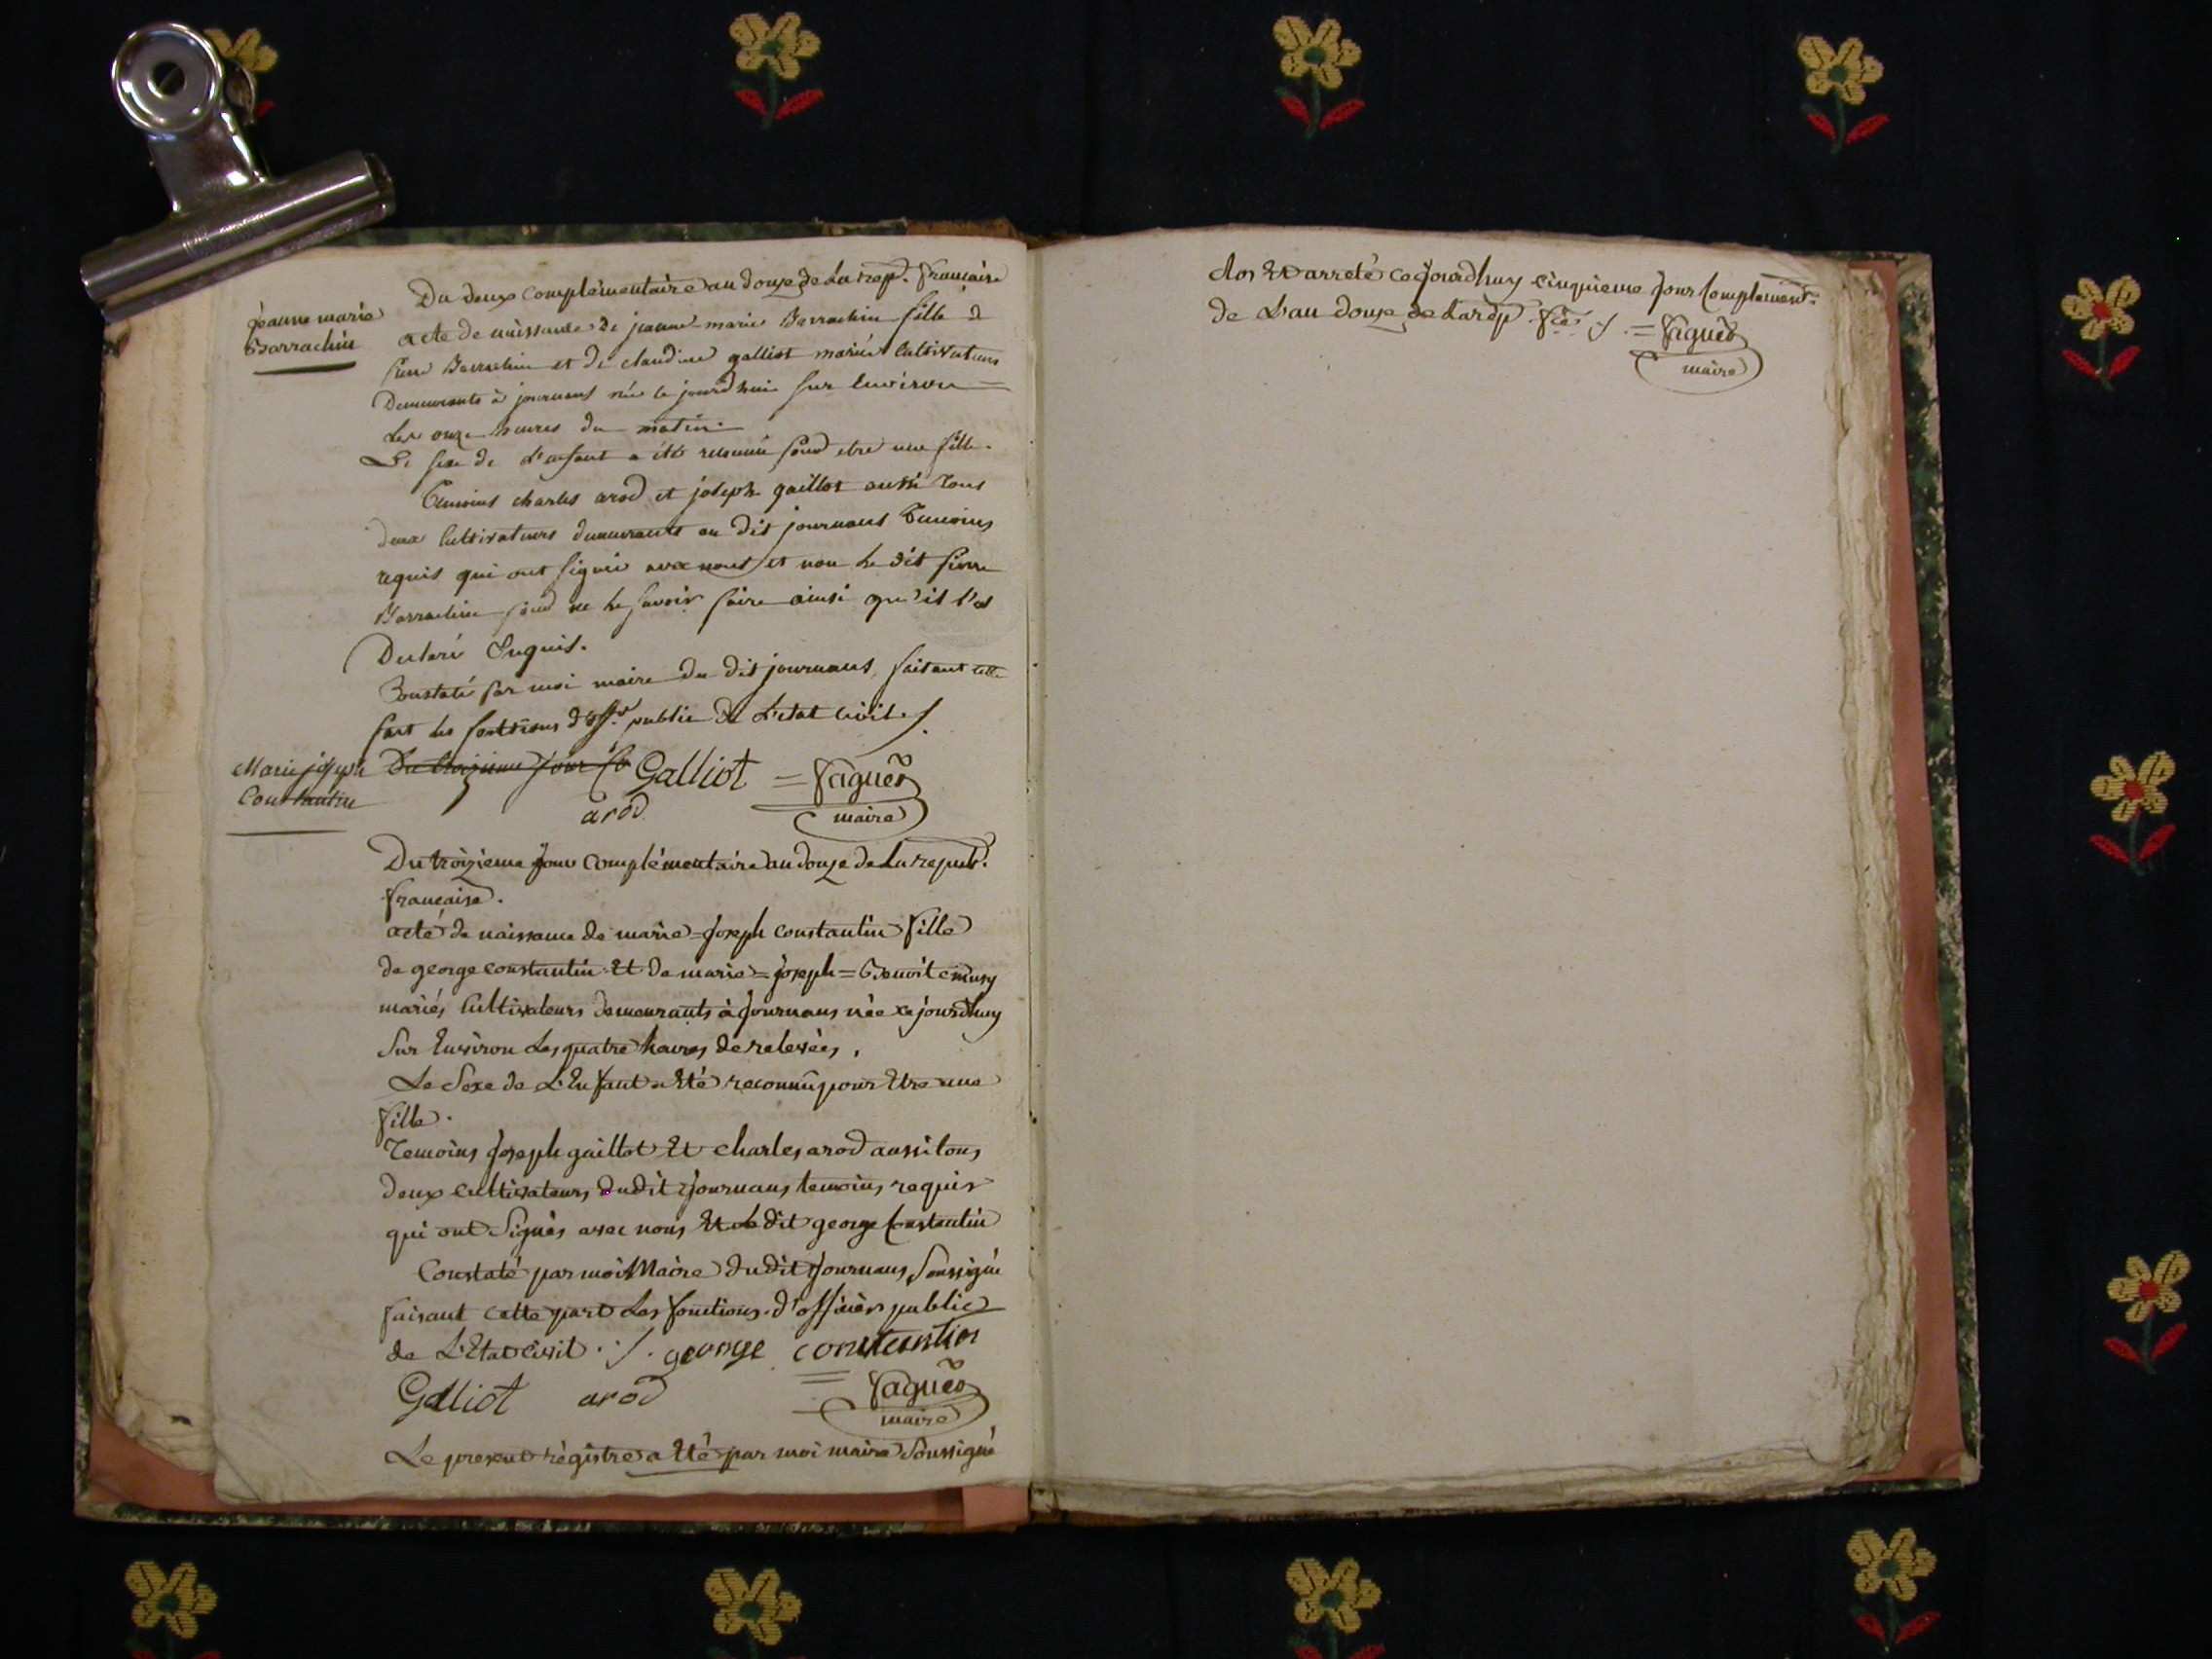 jeanne marie
Barrachin
Du deux complémentaire an douze de La rep. française
acte de naissance de jeanne marie Barrachin fille de
pierre Barrachin et de claudine galliot mariés cultivateurs
Demeurants à journans née ce jourd'hui sur environ =
Les onze heures du matin.
Le sexe de L'enfant a été reconnu pour etre une fille.
Temoins charles arod et joseph gaillot aussi tous
deux cultivateurs demeurants au dit journans Temoins
requis qui ont signé avec nous et non le dit pierre
Barrachin pour ne le savoir faire ainsi qu'il l'a
Declaré Enquis.
Constaté par moi maire du dit journans, faisant cette
part les fonctions d'off.er public de L'etat civil ./.
Marie joseph
Constantin
Du troizieme jour Co Galliot = Fagués
arod maire
Du troizieme jour complémentaire an douze de La repub.
française.
acte de naissance de marie = joseph constantin fille
de george constantin Et de marie = joseph = Benoite musy
mariés Cultivateurs demeurants à journans née ce jourdhuy
Sur Environ Les quatre heures de relevées,
Le Sexe de L'Enfant a Eté reconnu pour Etre une
fille.
Temoins joseph gaillot Et charles arod aussi tous
deux cultivateurs dudit journans temoins requis
qui ont Signés avec nous Et Le dit george Constantin
Constaté par moi Maire dudit journans Soussigné
faisant cette part Les fonctions d'officier public
de L'Etat civil ./. george constantin
Galliot arod = Fagués
maire
Le present régistre a Eté par moi maire Soussigné
clos Et arreté ce jourdhuy cinquieme jour Complement.
de L'an douze de La rép. fce ./. = Fagués
maire